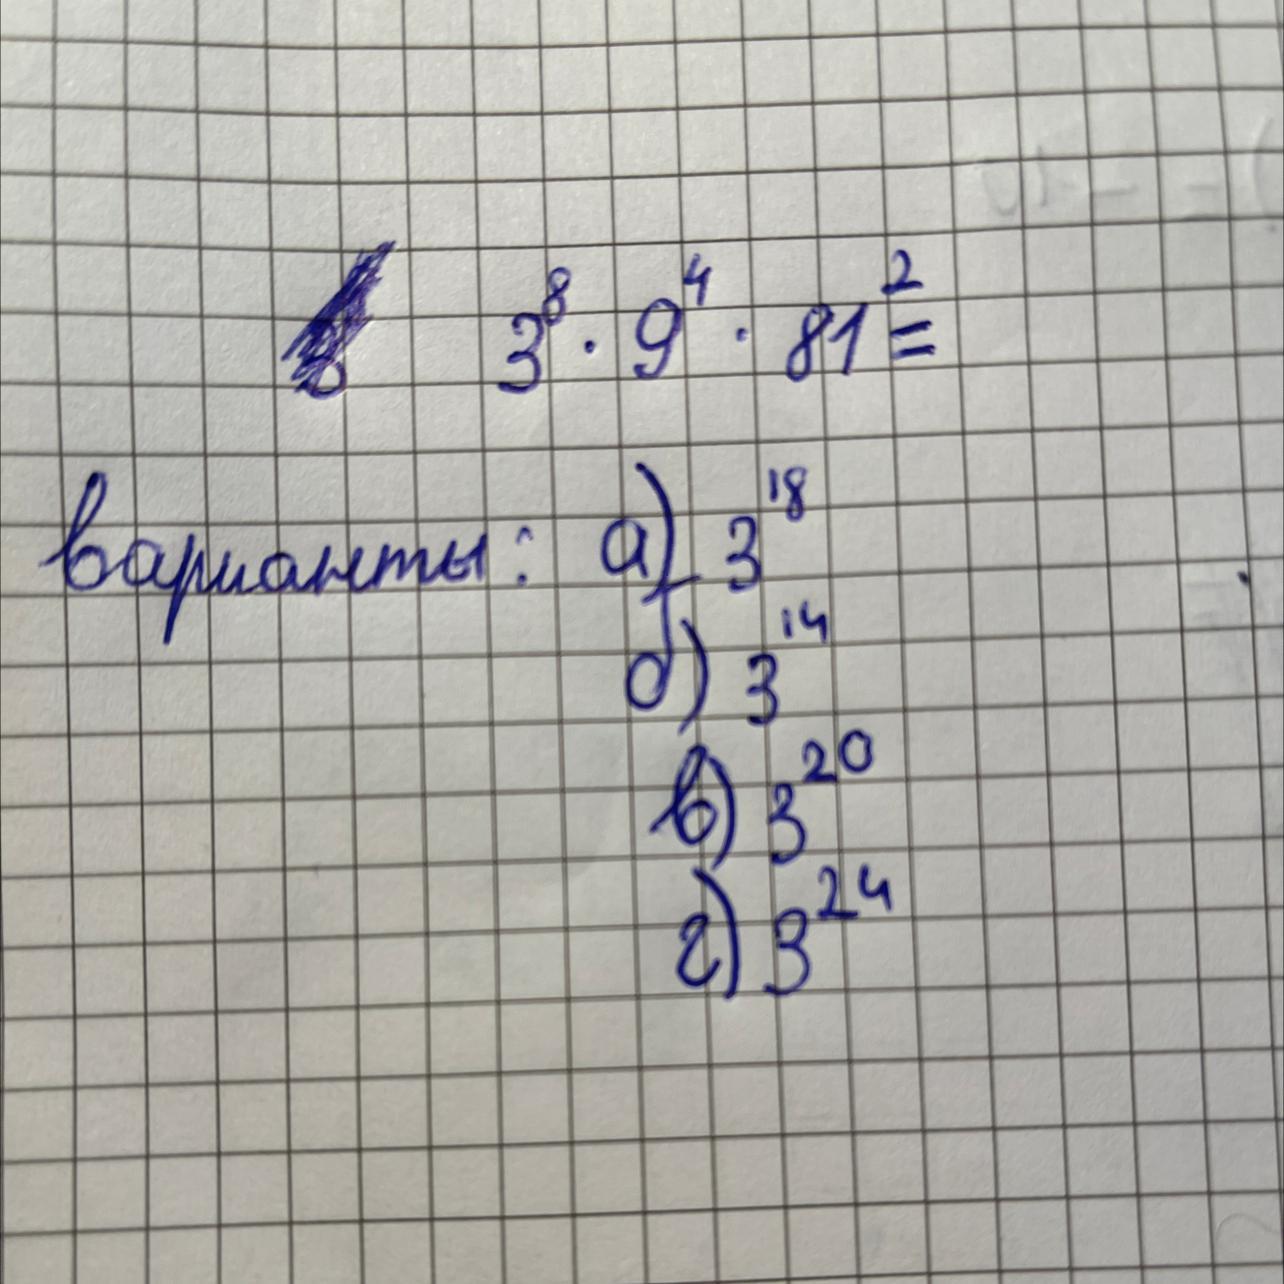 3⁸ · 9⁴ · 81² =
варианты: а) 3¹⁸
б) 3¹⁴
в) 3²⁰
г) 3²⁴